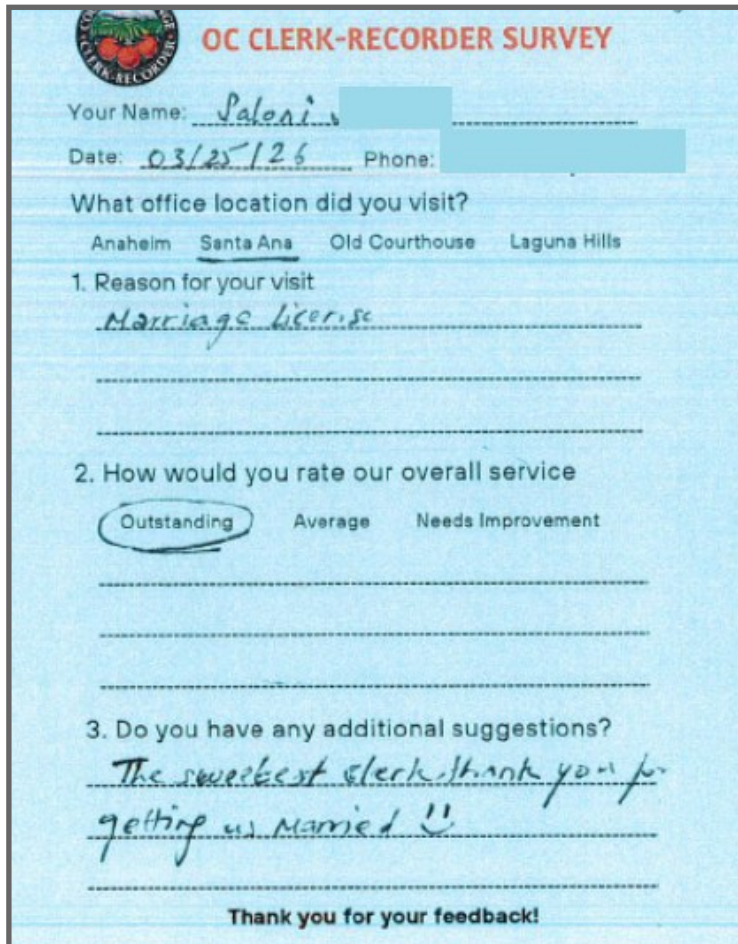 CLERK-RECORDER
OC CLERK-RECORDER SURVEY
Your Name: Saloni
Date: 03/25/26 Phone:
What office location did you visit?
Anaheim Santa Ana Old Courthouse Laguna Hills
1. Reason for your visit
Marriage License
2. How would you rate our overall service
Outstanding Average Needs Improvement
3. Do you have any additional suggestions?
The sweetest clerk. thank you for
getting us Married !!
Thank you for your feedback!